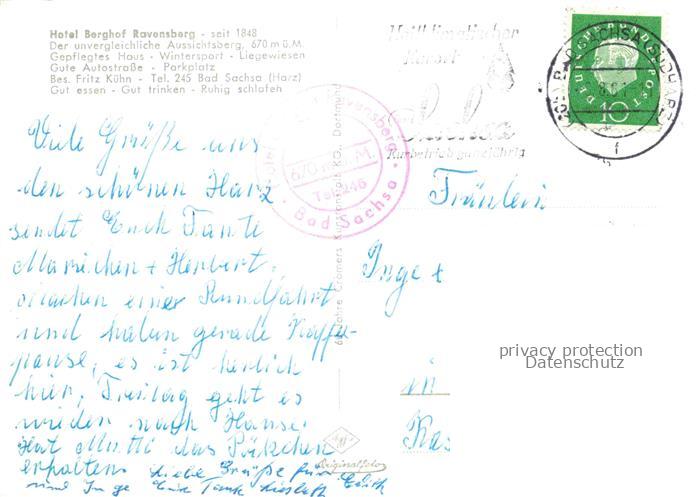 Hotel Berghof Ravensberg - seit 1848
Der unvergleichliche Aussichtsberg, 670 m ü.M.
Gepflegtes Haus - Wintersport - Liegewiesen
Gute Autostraße - Parkplatz
Bes. Fritz Kühn - Tel. 245 Bad Sachsa (Harz)
Gut essen - Gut trinken - Ruhig schlafen
Heilklimatischer
Kurort
Sachsa
Kurbetrieb ganzjährig
DEUTSCHE BUNDESPOST
10
BAD SACHSA (SÜDHARZ)
f
Ravensberg
670 m ü. M.
Tel. 245
Bad Sachsa
Jahre Cramers Kunstanstalt KG., Dortmund
Viele Grüße aus
dem schönen Harz
sendet Euch Tante
Mariechen + Herbert.
Machen einer Rundfahrt
und haben gerade Kaffee-
pause, es ist herlich
hier, Freitag geht es
wieder nach Hause.
Hat Mutti das Päkchen
erhalten. Liebe Grüße für
und Inge Tante Edith
Fräulein
Inge +
in
Ka
Originalfoto
privacy protection
Datenschutz